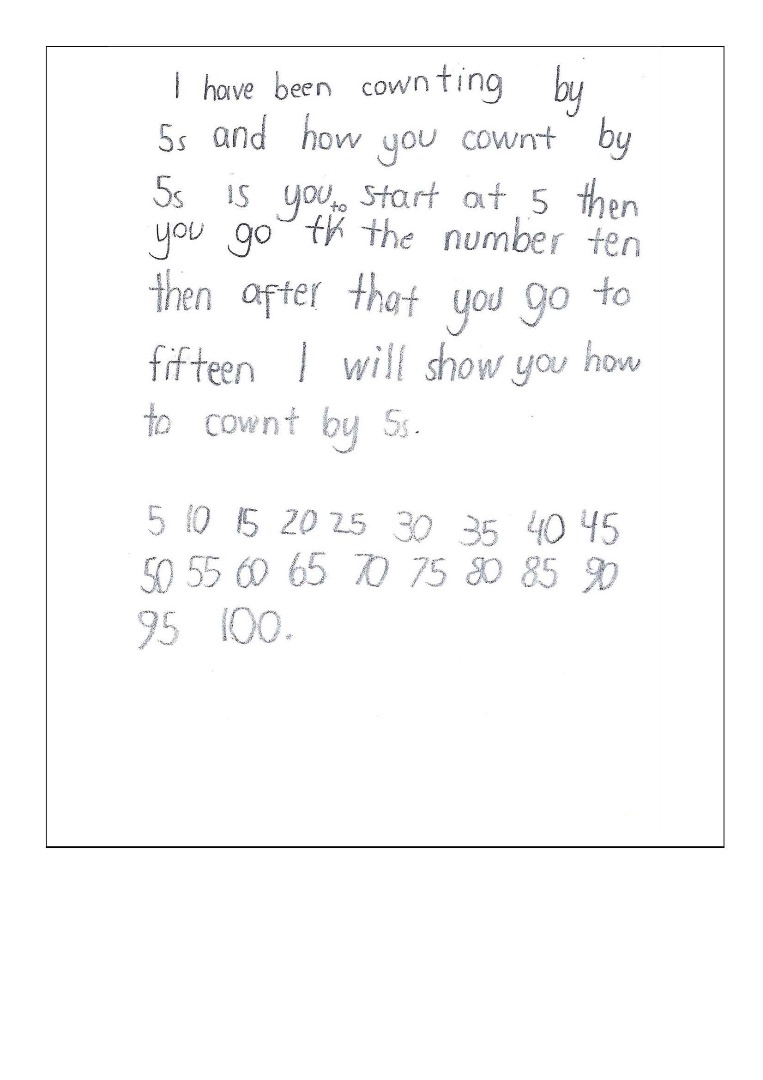 I have been cownting by
5s and how you cownt by
5s is you start at 5 then
you go to the number ten
then after that you go to
fifteen I will show you how
to cownt by 5s.
5 10 15 20 25 30 35 40 45
50 55 60 65 70 75 80 85 90
95 100.